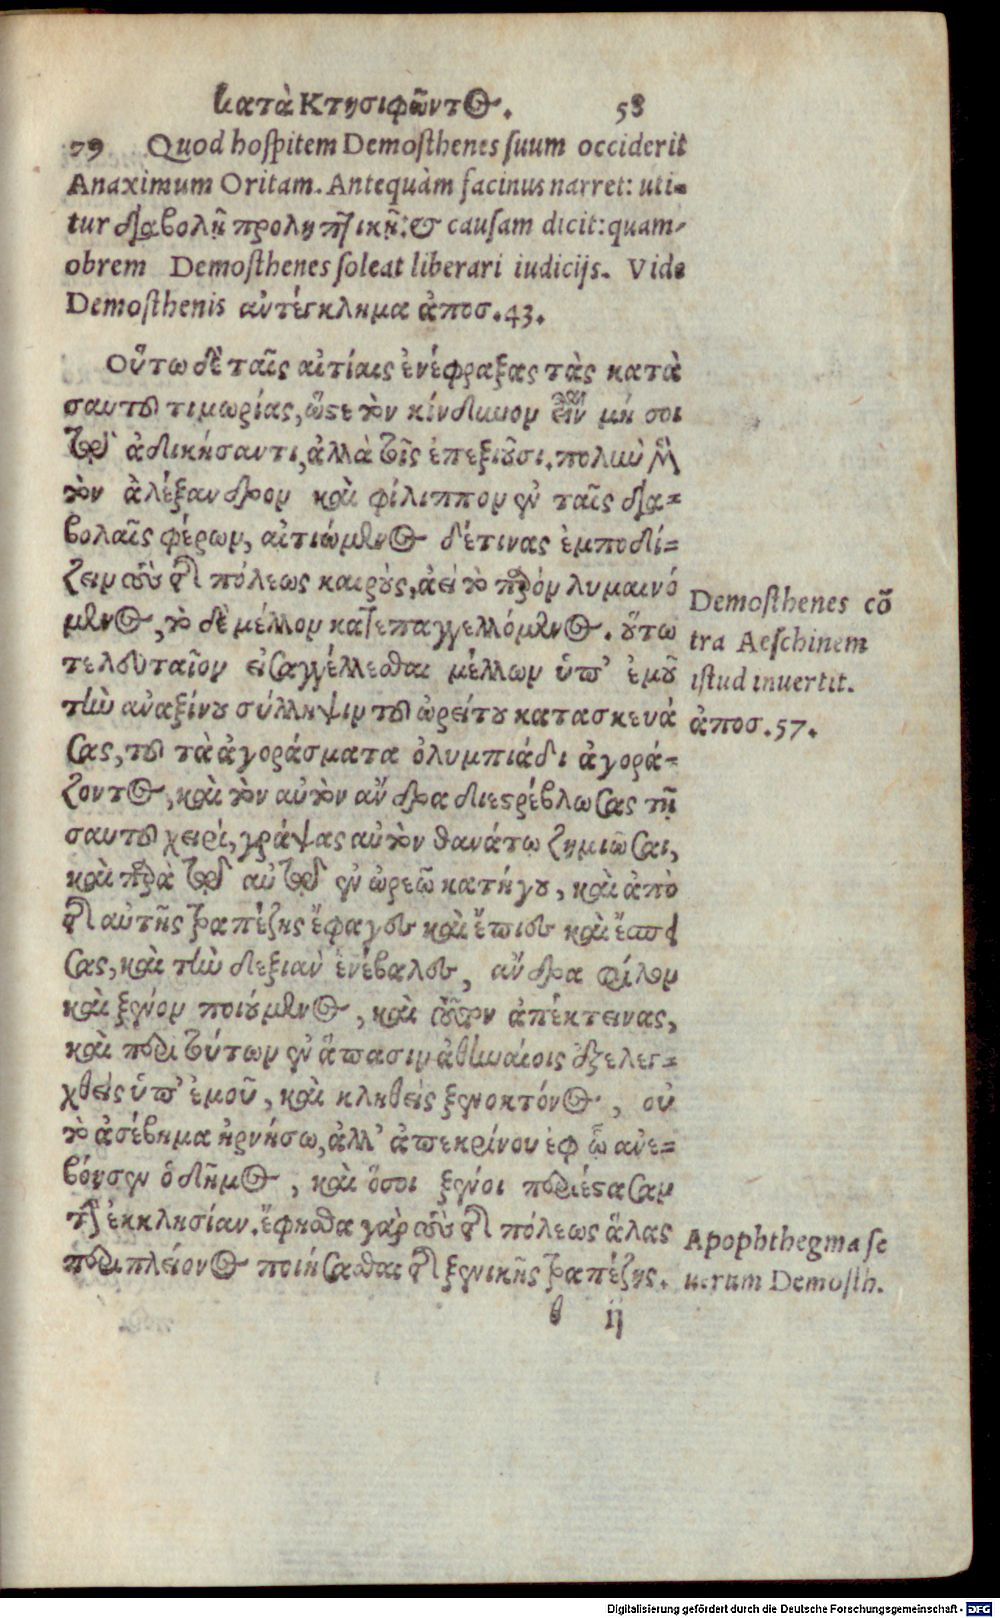 κατὰ Κτησιφῶντος. 58
79 Quod hospitem Demosthenes suum occiderit
Anaximum Oritam. Antequàm facinus narret: uti-
tur διαβολῇ προληπτικῇ: & causam dicit: quam-
obrem Demosthenes soleat liberari iudicijs. Vide
Demosthenis αὐτέγκλημα ἀποσ. 43.
Οὕτω δὲ ταῖς αἰτίαις ἐνέφραξας τὰς κατὰ
σαυτοῦ τιμωρίας, ὥστε τὸν κίνδυνον εἶναι μή σοι
τῷ ἀδικήσαντι, ἀλλὰ τοῖς ἐπεξιοῦσι. πολὺν μὲν
τὸν ἀλέξανδρον καὶ φίλιππον ἐν ταῖς δια-
βολαῖς φέρων, αἰτιώμενος δέ τινας ἐμποδί-
ζειν τοὺς τῆς πόλεως καιροὺς, ἀεὶ τὸ παρὸν λυμαινό
μενος, τὸ δὲ μέλλον κατεπαγγελλόμενος. οὕτω
τελευταῖον εἰσαγγέλλεσθαι μέλλων ὑπ' ἐμοῦ
τὴν ἀναξίνου σύλληψιν τοῦ ὠρείτου κατασκευά
σας, τοῦ τὰ ἀγοράσματα ὀλυμπιάδι ἀγορά-
ζοντος, καὶ τὸν αὐτὸν ἄνδρα διεστρέβλωσας τῇ
σαυτοῦ χειρί, γράψας αὐτὸν θανάτῳ ζημιῶσαι,
καὶ παρὰ τῷ αὐτῷ ἐν ὠρεῷ κατήγου, καὶ ἀπὸ
τῆς αὐτῆς τραπέζης ἔφαγες καὶ ἔπιες καὶ ἔσπει
σας, καὶ τὴν δεξιὰν ἐνέβαλες, ἄνδρα φίλον
καὶ ξένον ποιούμενος, καὶ τοῦτον ἀπέκτεινας,
καὶ περὶ τούτων ἐν ἅπασιν ἀθηναίοις ἐξελεγ-
χθεὶς ὑπ' ἐμοῦ, καὶ κληθεὶς ξενοκτόνος, οὐ
τὸ ἀσέβημα ἠρνήσω, ἀλλ' ἀπεκρίνου ἐφ ᾧ ἀνε-
βόησεν ὁ δῆμος, καὶ ὅσοι ξένοι περιέστασαν
τὴν ἐκκλησίαν. ἔφησθα γὰρ τοὺς τῆς πόλεως ἅλας
περὶ πλείονος ποιήσασθαι τῆς ξενικῆς τραπέζης.
θ ij
Demosthenes cō
tra Aeschinem
istud inuertit.
ἀποσ. 57.
Apophthegma se
uerum Demosth.
Digitalisierung gefördert durch die Deutsche Forschungsgemeinschaft - DFG